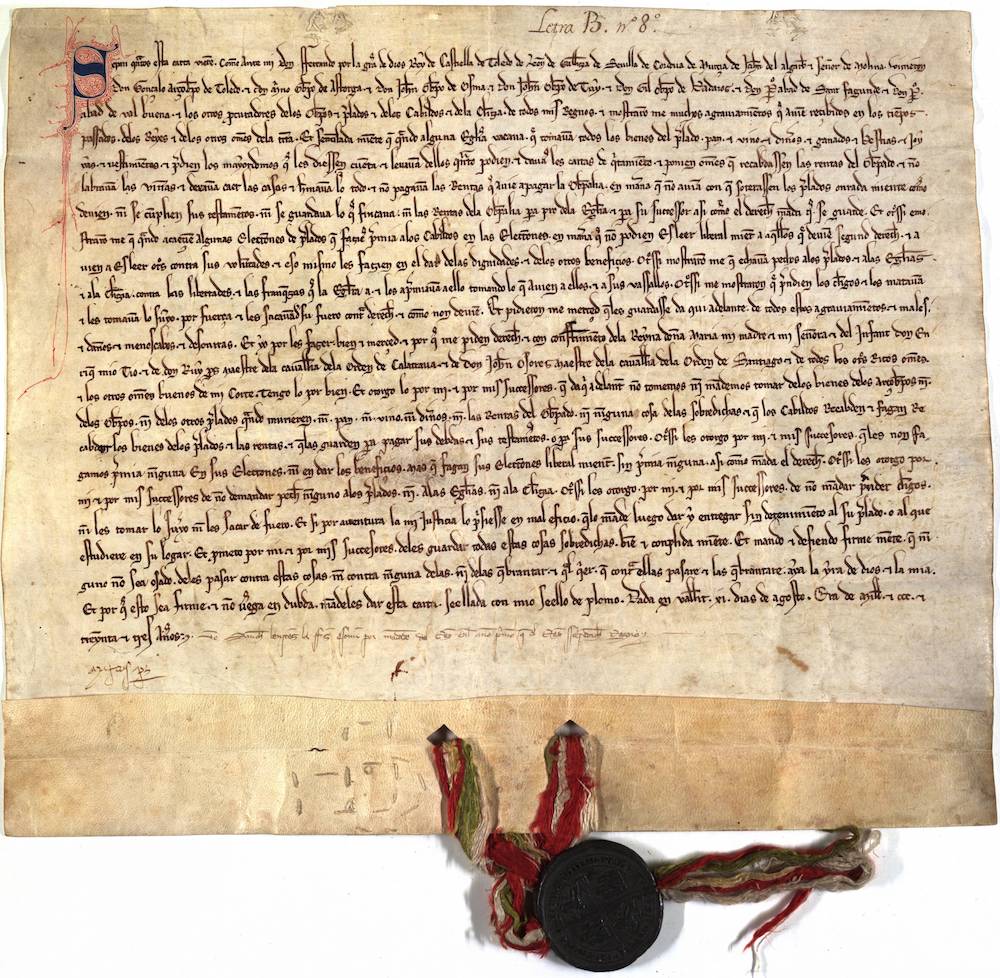 Letra B. nº 8º.
Sepan qntos esta carta vieren. Como ante mi don Ferrando por la gra de dios Rey de Castiella de Toledo de Leon de Gallizia de Seuilla de Cordoua de Murcia de Jahen del Algarbe & Señor de Molina. vinieron
Don Gonçalo Arçobpo de Toledo. & don Obpo de Astorga. & Don Johan Obpo de Osma. & Don Johan Obpo de Tuy. & Don Gil Obpo de Badaioz. & Don Abad de Sant fagunde & don P.
abad de val buena. & los otros procuradores delos Obpos & plados & delos Cabildos & dela Clizia. de todos mis Regnos. & mostraron me muchos agrauiamientos q auien recebidos en los tiempos
passados. delos Reyes & delos otros omes dela tierra. Et Señalada miente q quando alguna Eglia vacaua. q tomauan todos los bienes del plado. pan. & vino & dineros. & ganados. & bestias & joy
as. & vestimientas & prendien los mayordomos q les diessen cuenta & leuauan dellos quanto podien. & dauan les cartas de qitamiento. & ponien omes q recabdassen las rentas del Obpado & no
labrauan las viñas & dexauan caer las casas & lo todo & no pagauan las Rentas q auie apagar la Obpalia. en manera q no auian con q soterrassen los plados onrada miente como
deuien. ni se cunplien sus testamentos. ni se guardaua lo q fincaua. ni las Rentas dela Obpalia pa pro dela Eglia & pa su successor asi como el derecho manda q se guarde. Et otrossi
mostraron me q quando acaecien algunas Elecciones de plados. q fazien pmia alos Cabildos en las Elecciones. en manera q no podien Esleer liberal mient aqllos q deuien segund derecho. & a
uien a Esleer otros contra sus voluntades. & eso mismo les fazien en el dar delas dignidades. & delos otros beneficios. Otrossi mostraron me q echauan pechos alos plados. & alas Eglias
& ala Clizia. contra las libertades. & las franquezas q la Eglia a. & los apmiauan aello tomando lo q auien a ellos. & a sus vassallos. Otrossi me mostraron q prendien los cligos & los matauan
& les tomauan lo suyo. por fuerça. & les sacauan de su fuero contra derecho. & como non deuien. Et pidieron me merced q les guardasse da qui adelante. de todos estos agrauiamientos. & males.
& daños. & menoscabos. & desonrras. Et yo por les fazer bien & merced. & por q me piden derecho. & con conseio dela Reyna doña Maria mi madre. & mi Señora. & del Infant don En
riq mio Tio. & de don Ruy Pz Maestre dela caualleria dela Orden de Calatraua. & de Don Johan Osorez Maestre dela caualleria dela Orden de Santiago & de todos los otros Ricos omes.
& los otros omes buenos de mi Corte. Tengo lo por bien. Et otorgo lo por mi. & por mis Successores. q da qui adelant no tomemos ni mandemos tomar delos bienes delos Arçobpos ni.
delos Obpos. ni delos otros plados quando murieren. ni. pan. ni. vino. ni. dineros. ni. las Rentas del Obpado. ni ninguna cosa delas sobredichas. & q los Cabildos Recabden & fagan Re
cabdar los bienes delos plados & las rentas. & q las guarden pa pagar sus debdas. & sus testamentos. o pa sus successores. Otrossi les otorgo por mi. & mis successores. q les non fa
gamos pmia ninguna En sus Elecciones. ni en dar los beneficios. Mas q fagan sus Elecciones liberal mient. sin pmia ninguna. asi como manda el derecho. Otrossi les otorgo por
mi & por mis Successores de no demandar pecho ninguno alos plados. ni. Alas Eglias. ni ala Clizia. Otrossi les otorgo. por mi. & por mis successores. de no mandar prender cligos.
ni les tomar lo suyo ni les sacar de fuero. Et si por auentura la mi Justicia lo prisiesse en mal eficio. q lo mande luego dar & entregar sin detenimiento al su plado. o al que
estudiere en su logar. Et pmeto por mi. & por mis successores. deles guardar todas estas cosas sobredichas. bien & conplida miente. Et mando & defiendo firme miente. q nin
guno no sea osado. deles pasar contra estas cosas. ni contra ninguna delas. ni delas qbrantar. & ql qer. q contra ellas pasare & las qbrantare. aya la yra de dios. & la mia.
Et por q esto sea firme. & no venga en dubda. mandeles dar esta carta. Seellada con mio Seello de plomo. Dada en vallit. xi. dias de agosto. Era de mill. & ccc. &
treynta & tres Años.